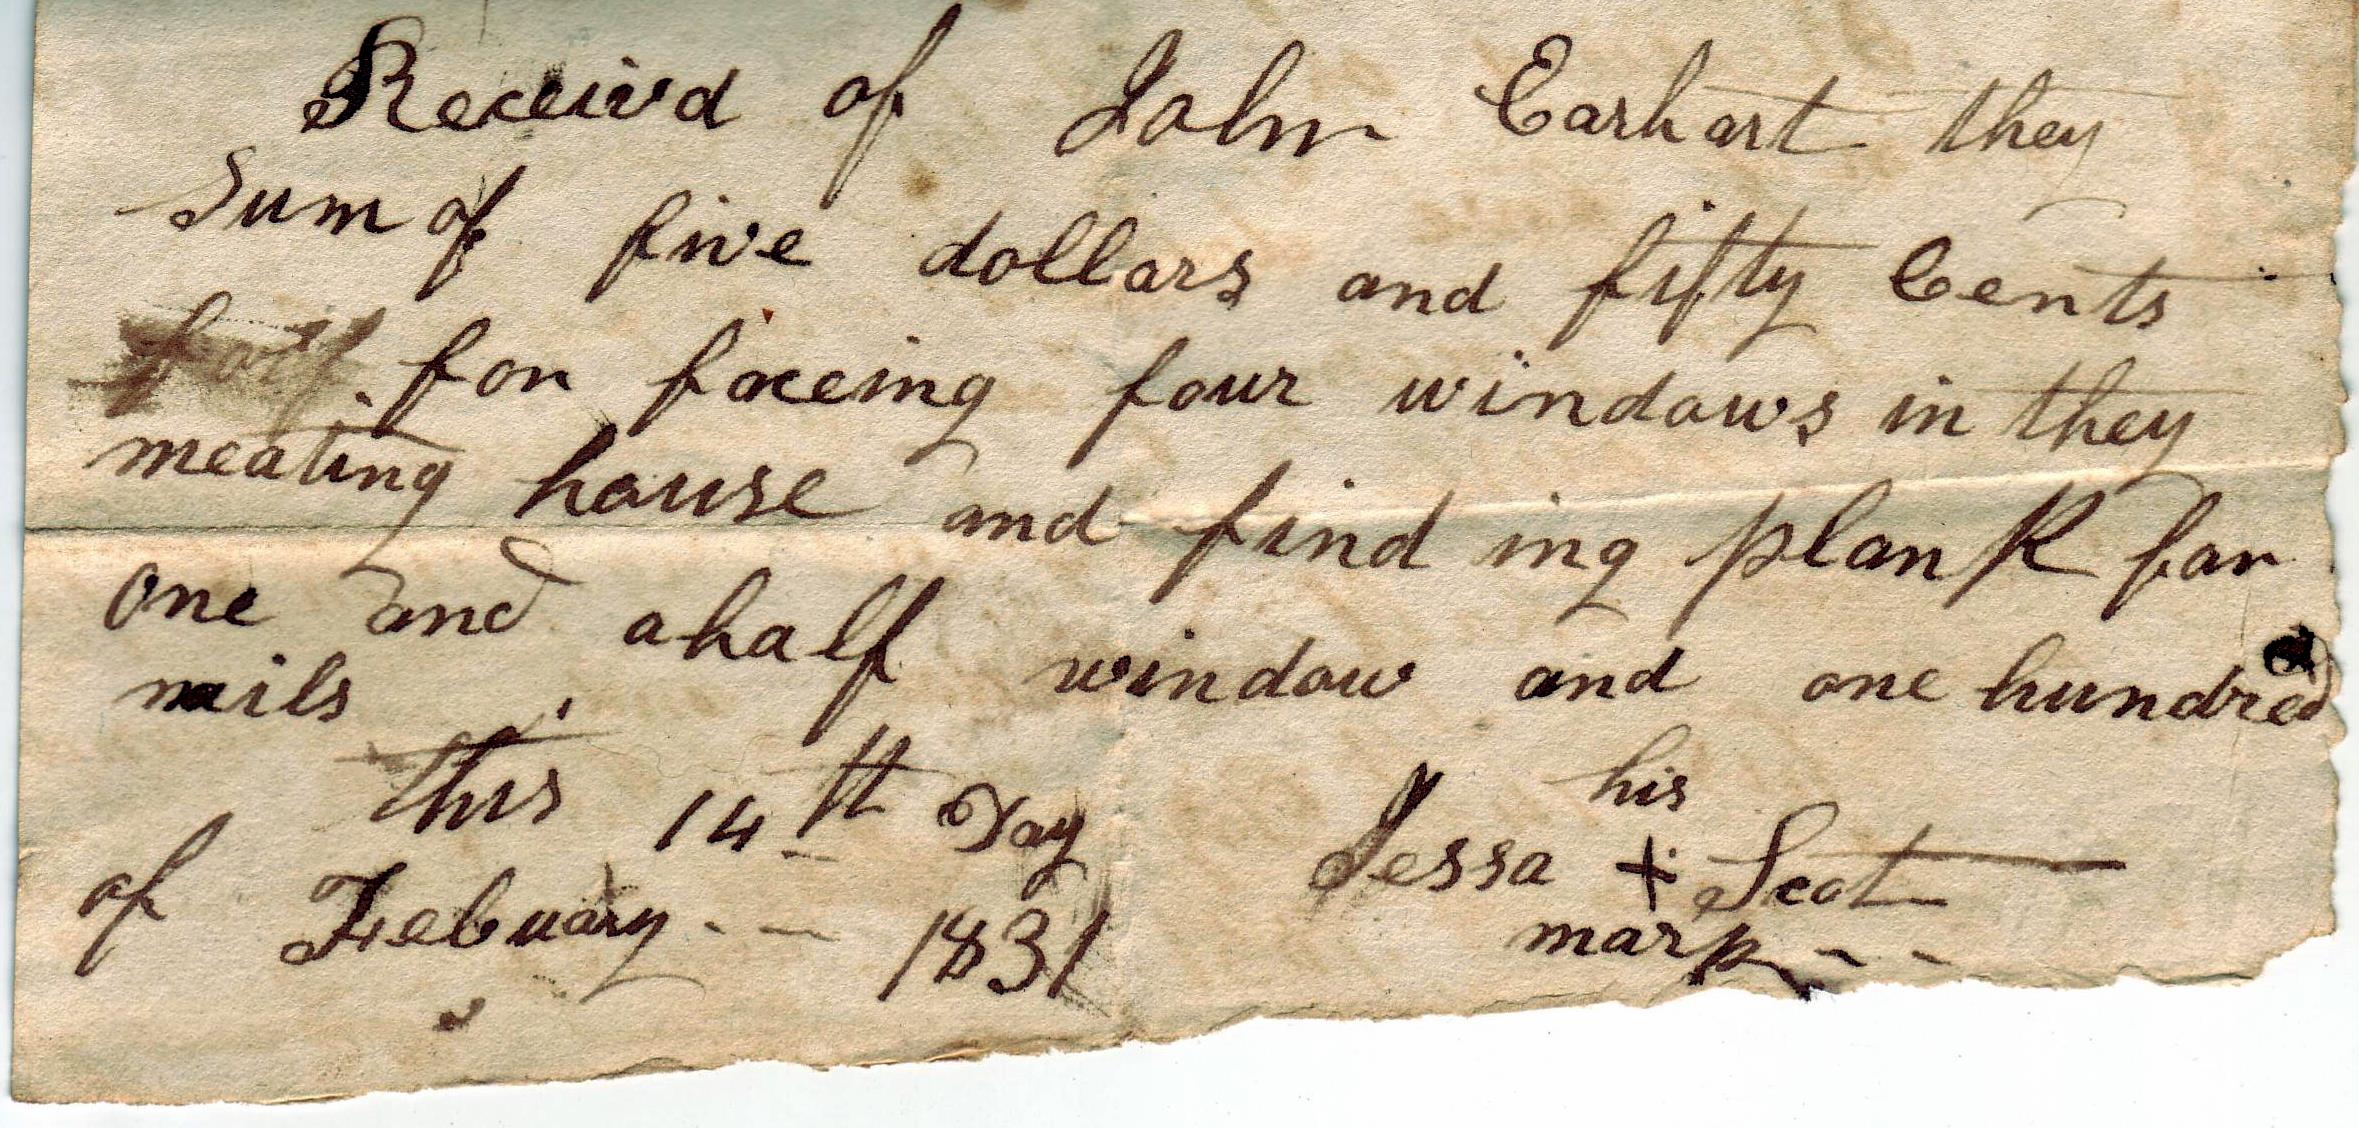 Receivd of John Earhart they
Sum of five dollars and fifty Cents
for faceing four windows in they
meating house and find ing plank for
one and ahalf window and one hundred
nails
this 14th Day
of Febuary - - 1831
his
Jessa + Scot
mark - -